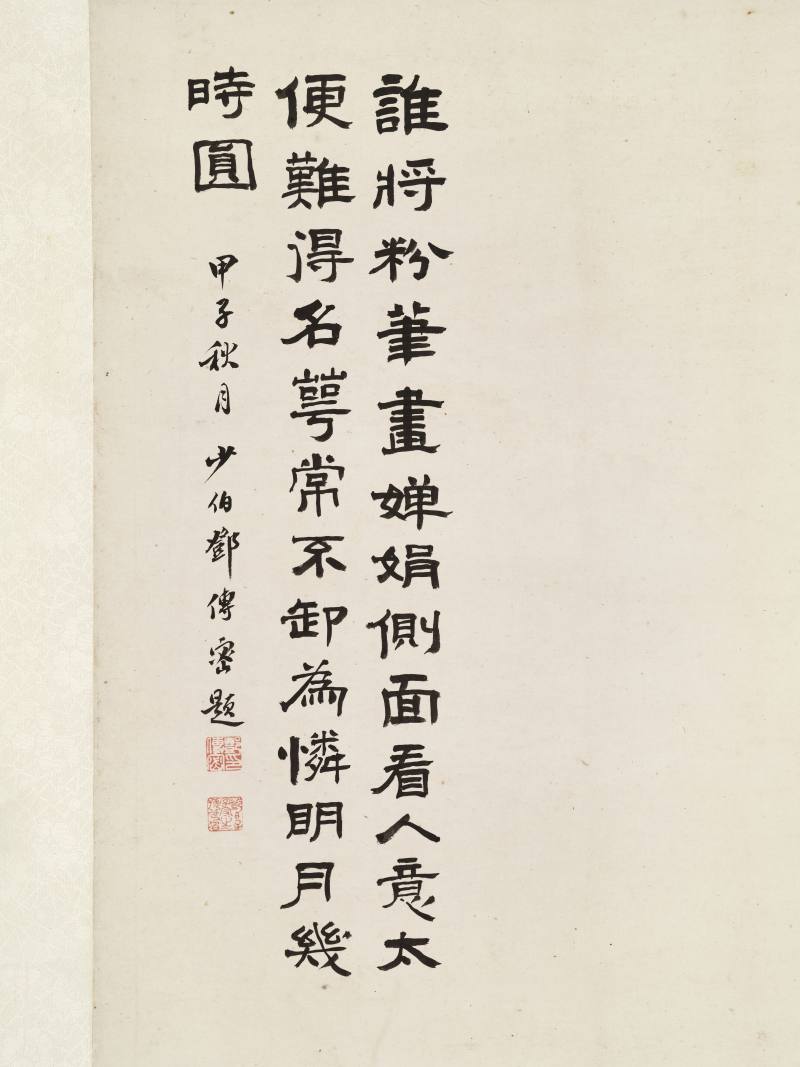 誰將粉筆畫嬋娟側面看人意太
便難得名萼常不卸為憐明月幾
時圓
甲子秋月少伯鄧傳密題